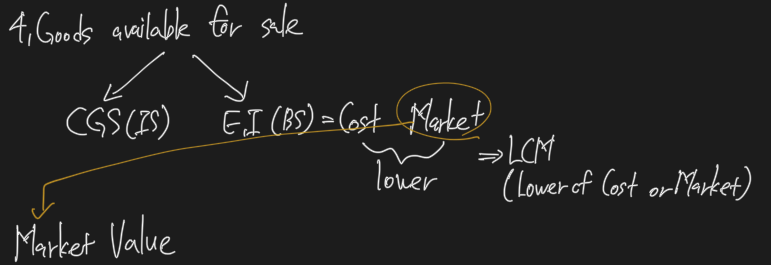 4. Goods available for sale
CGS(IS) E.I (BS) = Cost Market
lower ⇒ LCM
(Lower of Cost or Market)
Market Value